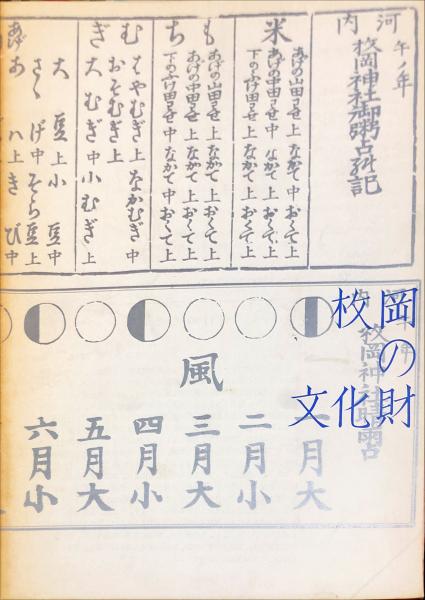 河内
午ノ年
枚岡神社御粥占記
米
あげの山田わせ上 なかて中 おくて上
あげの中田わせ中 なかて上 おくて上
下のふけ田わせ上 なかて上 おくて上
もち
あげの山田わせ上 なかて上 おくて上
あげの中田わせ上 なかて上 おくて上
下のふけ田わせ中 なかて中 おくて上
むぎ
はやむぎ上 なかむぎ中
おそむぎ上
大むぎ中 小むぎ上
大豆上 小豆中
さゝげ中 そら豆上
あ 上 きび中
枚岡
の
文化財
枚岡神社晴雨占
風
一月大
二月小
三月大
四月小
五月大
六月小